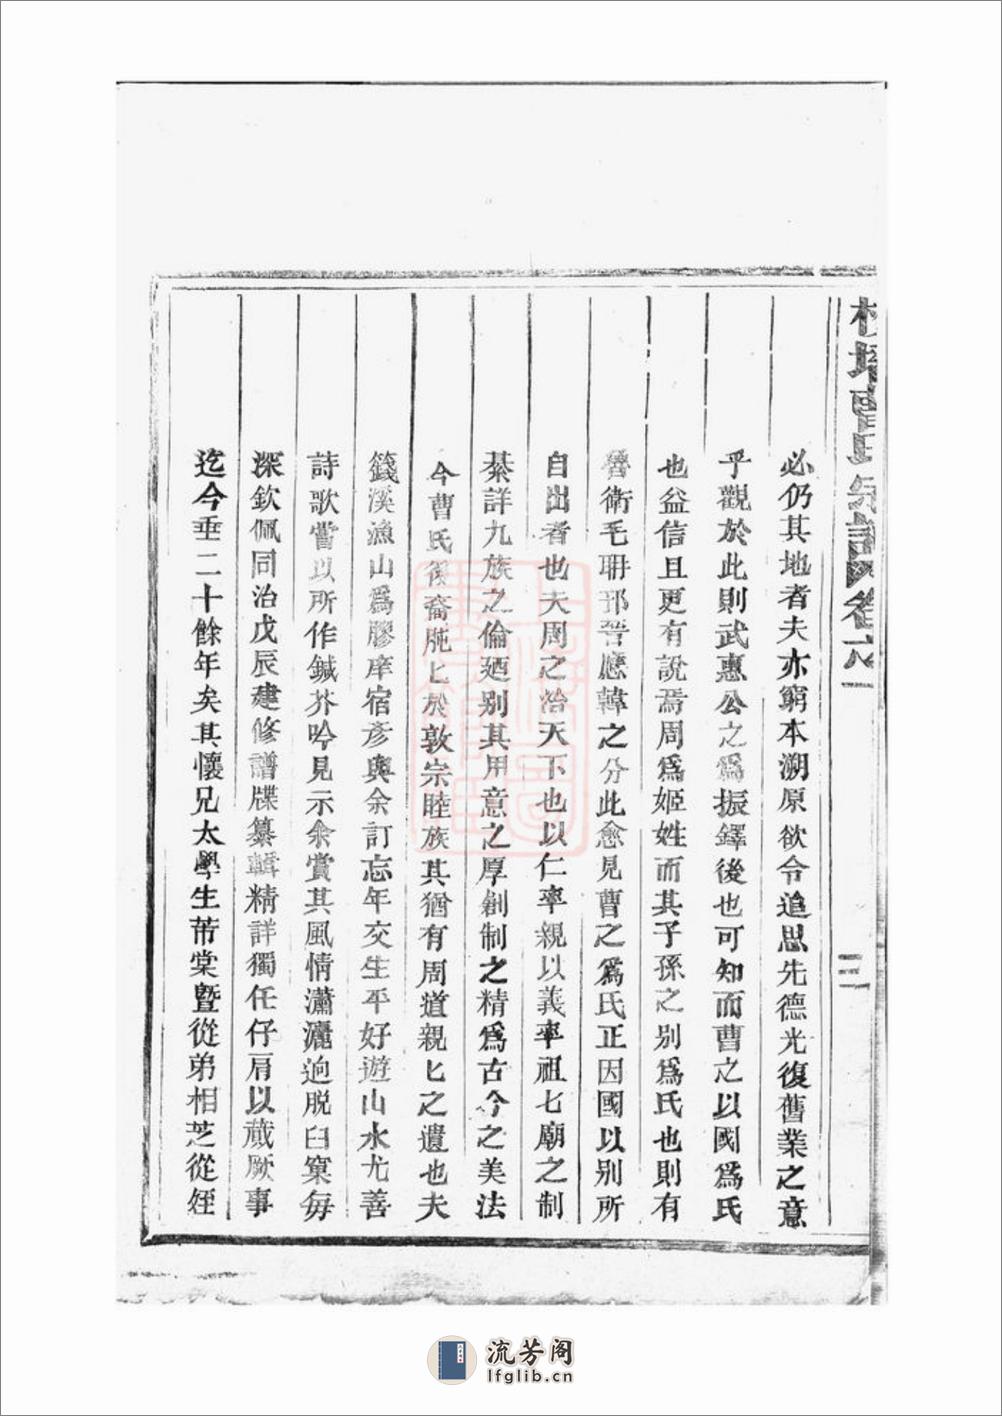 曹氏宗譜卷六
三
必仍其地者夫亦窮本溯原欲令追思先德光復舊業之意
乎觀於此則武惠公之爲振鐸後也可知而曹之以國爲氏
也益信且更有說焉周爲姬姓而其子孫之別爲氏也則有
魯衛毛聃邘晉應韓之分此愈見曹之爲氏正因國以別所
自出者也夫周之治天下也以仁率親以義率祖七廟之制
綦詳九族之倫廼別其用意之厚創制之精爲古今之美法
今曹氏後裔肫匕於敦宗睦族其猶有周道親匕之遺也夫
籛溪漁山爲膠庠宿彥與余訂忘年交生平好遊山水尤善
詩歌嘗以所作鍼芥吟見示余賞其風情瀟灑逈脫臼窠每
深欽佩同治戊辰建修譜牒纂輯精詳獨任仔肩以蕆厥事
迄今垂二十餘年矣其懷兄太學生芾棠暨從弟相芝從姪
流芳阁
lfglib.cn